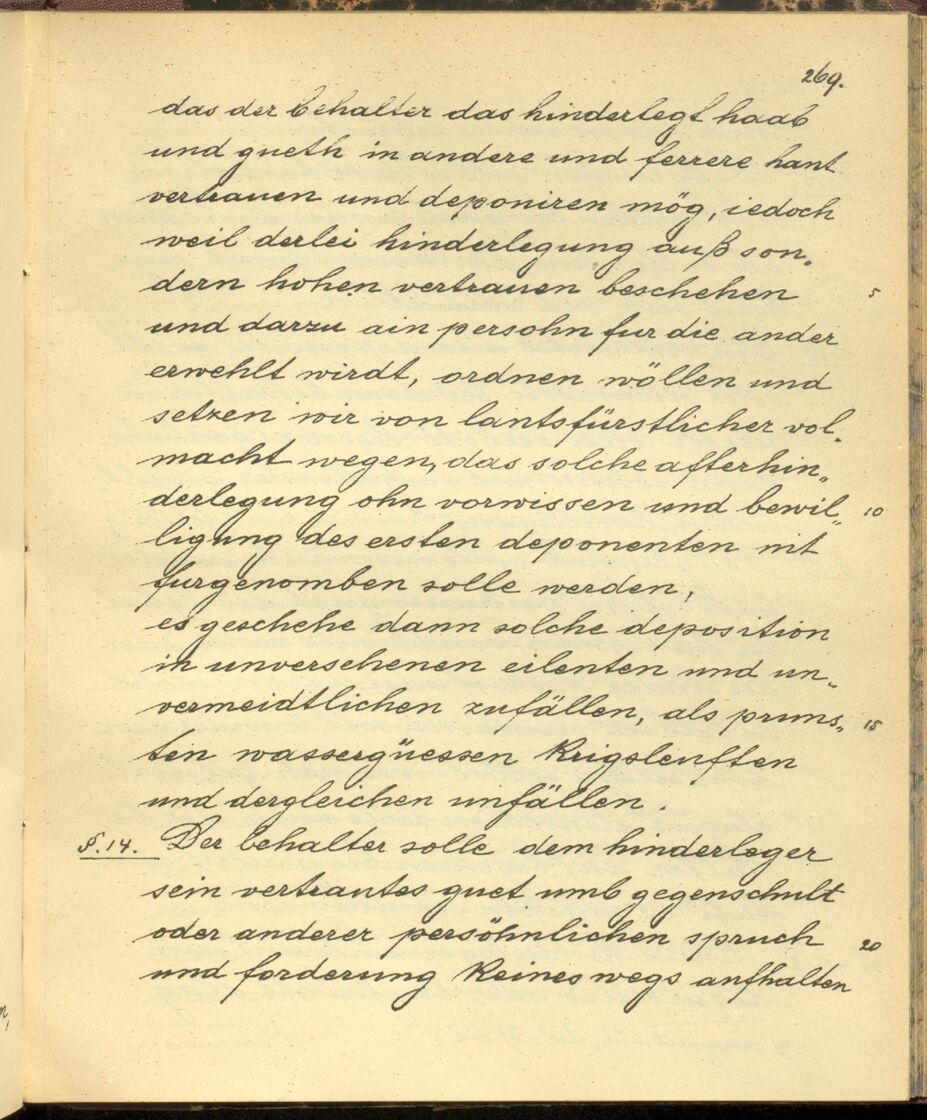 269.
das der behalter das hinderlegt haab
und gueth in andere und ferrere hant
vertrauen und deponiren mög, iedoch
weil derlei hinderlegung auß son„
dern hohen vertrauen beschehen 5
und darzu ain persohn fur die ander
erwehlt wirdt, ordnen wöllen und
setzen wir von lantsfürstlicher vol„
macht wegen, das solche afterhin„
derlegung ohn vorwissen und bewil„ 10
ligung des ersten deponenten nit
furgenomben solle werden,
es geschehe dann solche deposition
in unversehenen eilenten und un„
vermeidtlichen zufällen, als pruns„ 15
ten wassergüessen Krigsleuften
und dergleichen unfällen.
§. 14. Der behalter solle dem hinderleger
sein vertrautes guet umb gegenschult
oder anderer persöhnlichen spruch 20
und forderung Keineswegs aufhalten